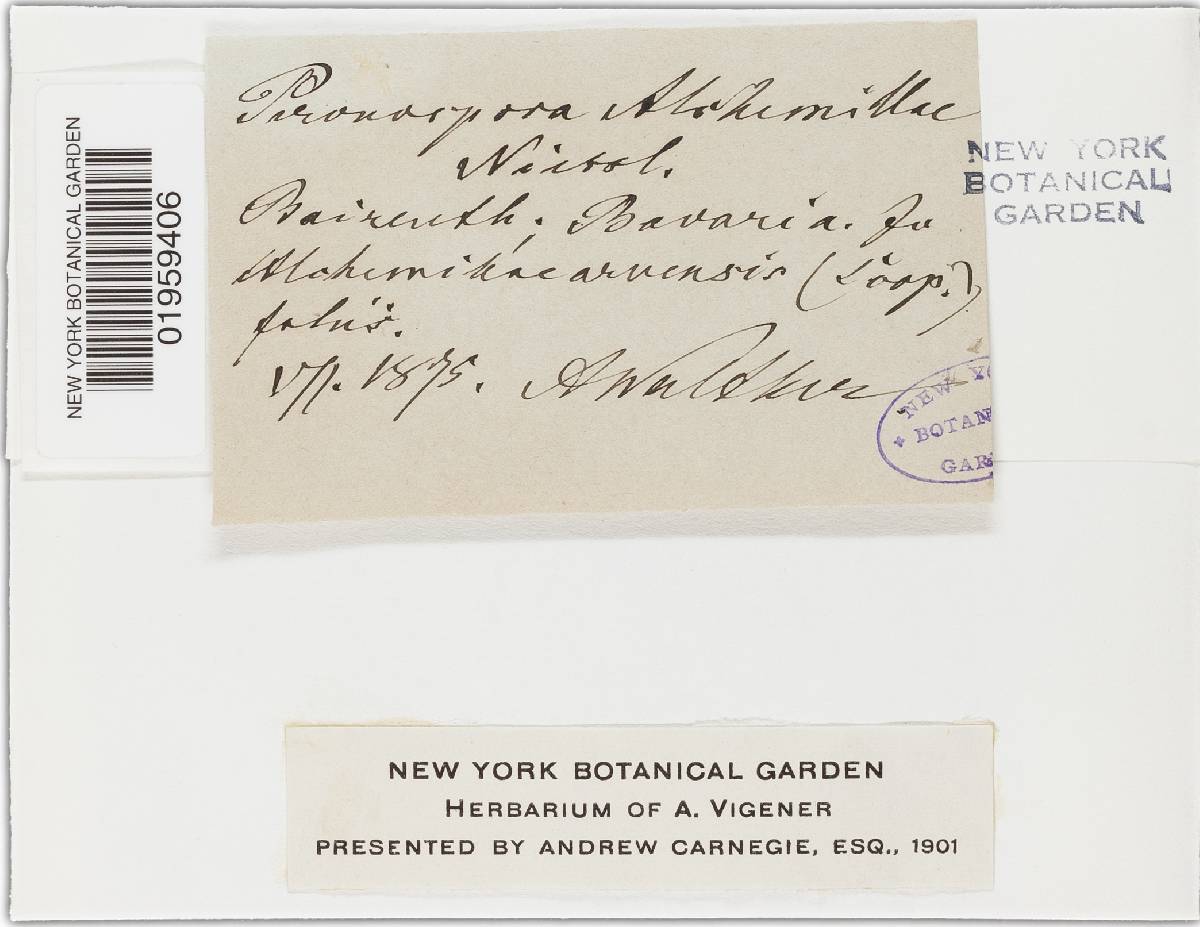 Peronospora Alchemillae
Niessl.
Baireuth; Bavaria. In
Alchemillae arvensis (Scop.)
foliis.
VI. 1875. AWalther
NEW YORK
BOTANICAL
GARDEN
NEW YORK BOTANICAL GARDEN
01959406
NEW YO
BOTAN
GAR
NEW YORK BOTANICAL GARDEN
HERBARIUM OF A. VIGENER
PRESENTED BY ANDREW CARNEGIE, ESQ., 1901